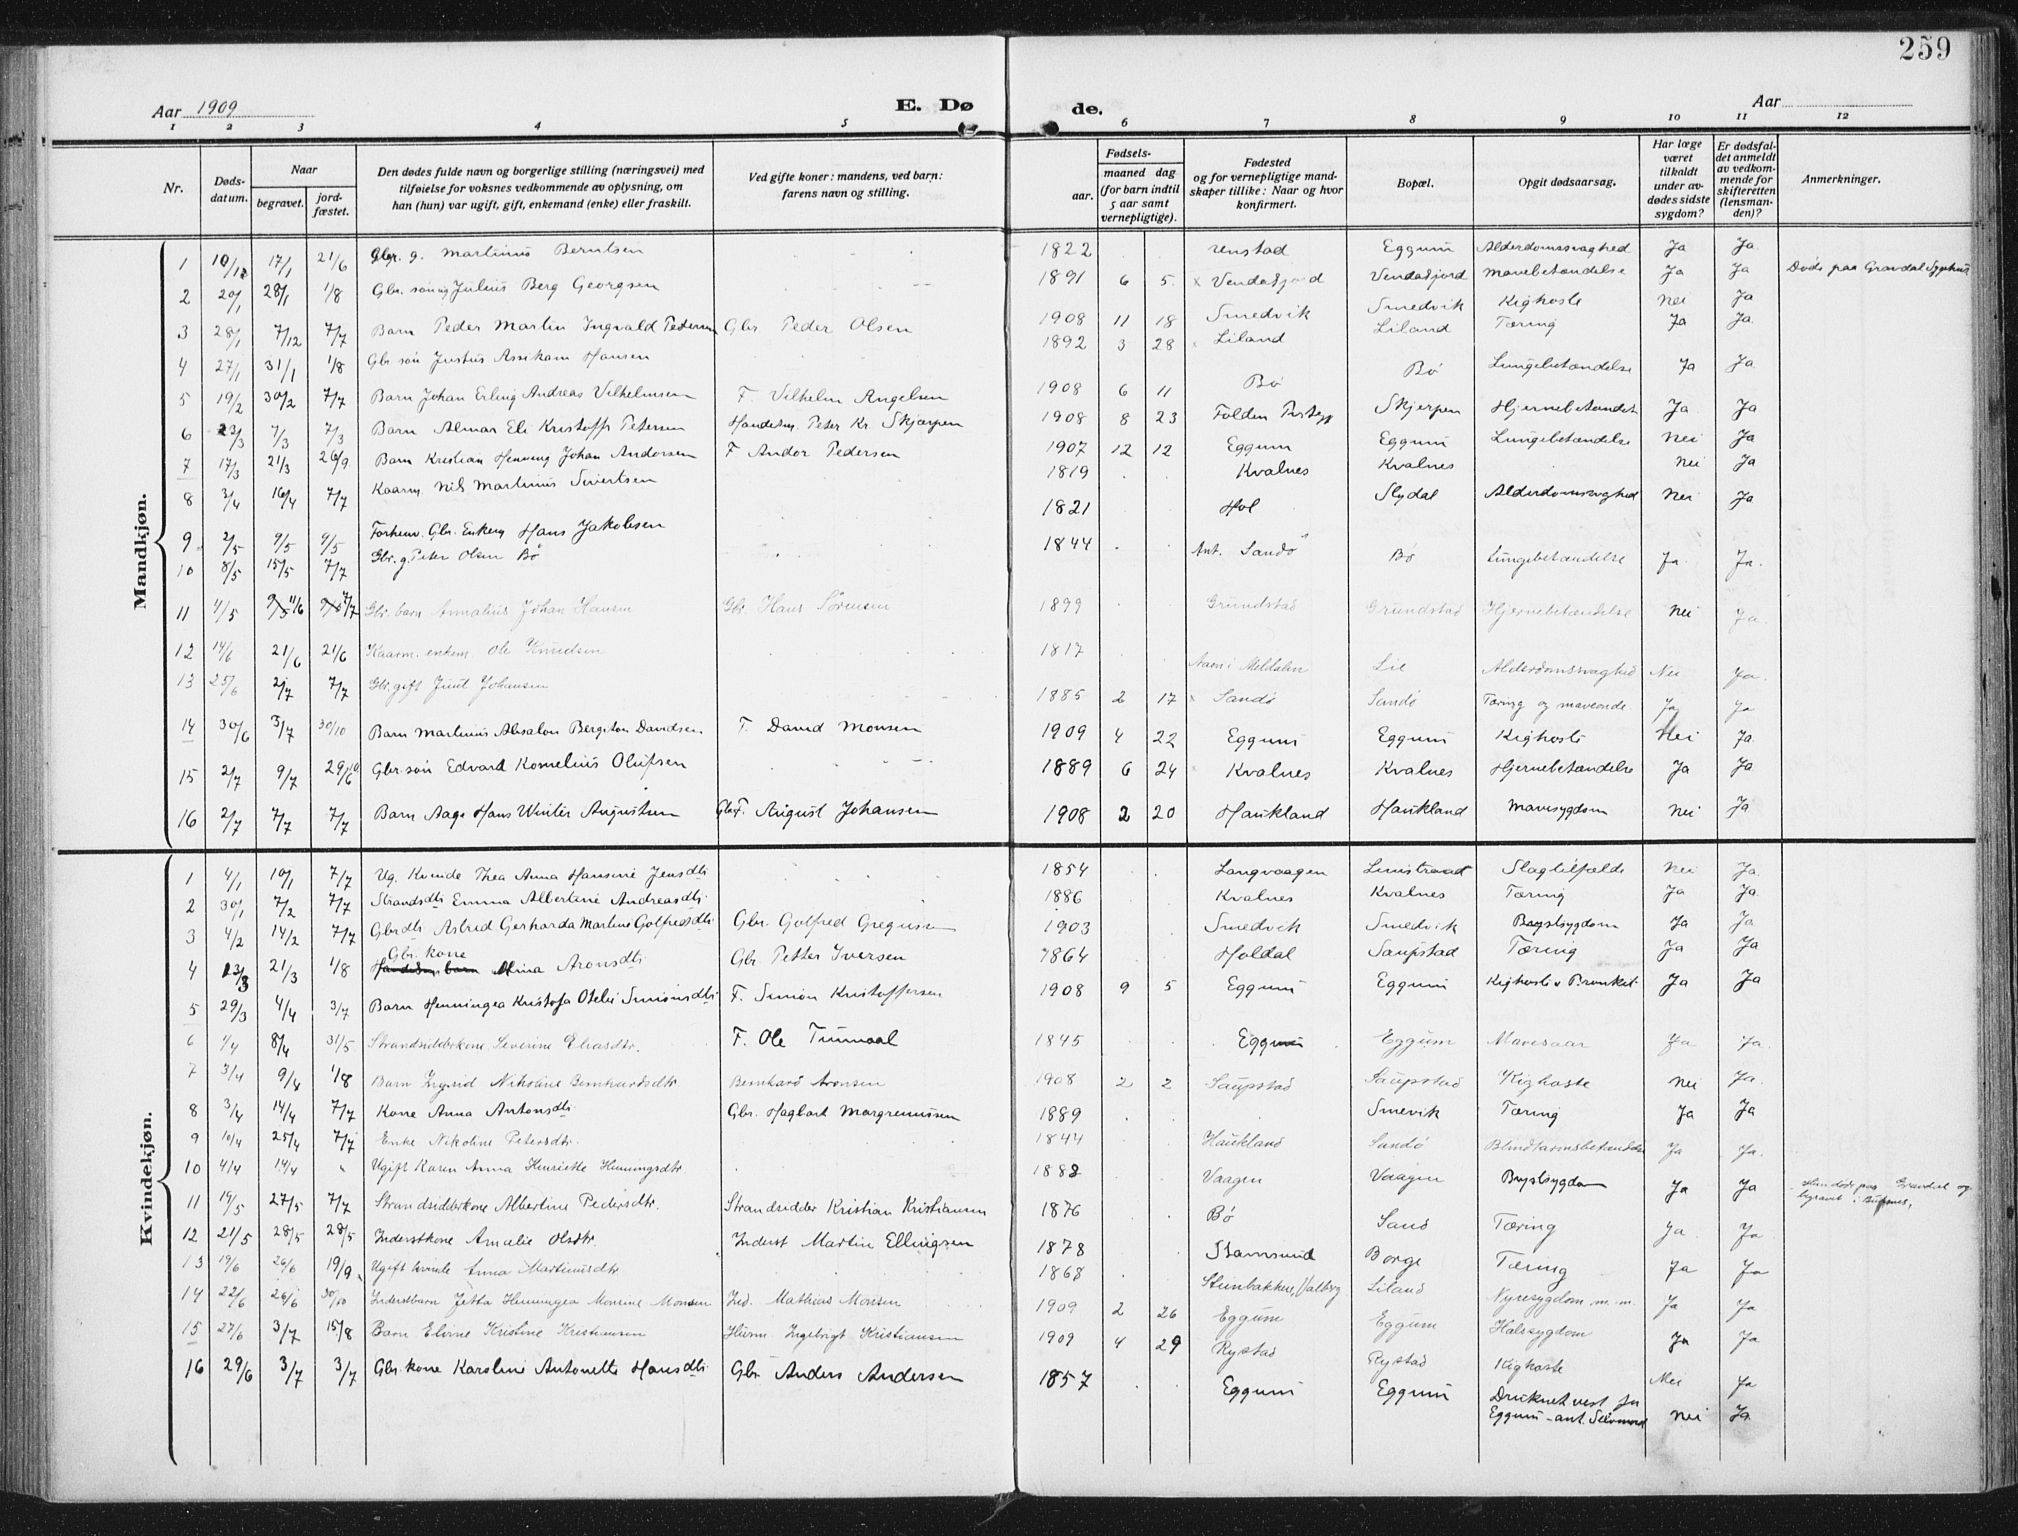 259
Aar 1909 E. Dø de. Aar
1 2 3 4 5 6 7 8 9 10 11 12
Nr. Døds-datum. Naar begravet. jord-fæstet. Den dødes fulde navn og borgerlige stilling (næringsvei) med tilføielse for voksnes vedkommende av oplysning, om han (hun) var ugift, gift, enkemand (enke) eller fraskilt. Ved gifte koner: mandens, ved barn: farens navn og stilling. Fødsels- aar. maaned dag (for barn indtil 5 aar samt vernepligtige). Fødested og for vernepligtige mandskaper tillike: Naar og hvor konfirmert. Bopæl. Opgit dødsaarsag. Har læge været tilkaldt under avdødes sidste sygdom? Er dødsfaldet anmeldt av vedkommende for skifteretten (lensmanden)? Anmerkninger.
Mandkjøn.
1 10/12 17/1 21/6 Gbr. g. Martinus Berntsen 1822 Eggum Alderdomssvaghed Ja Ja
2 20/1 28/1 1/8 Gbr. søn Julius Berg Georgsen 1891 6 5 Vendasjord Vendasjord Mavebetændelse Ja Ja Døde paa Gravdal Sygehus
3 28/1 7/12 7/7 Barn Peder Martin Ingvald Pedersen Gbr Peder Olsen 1908 11 18 Smedvik Smedvik Kighoste Nei Ja
4 27/1 31/1 1/8 Gbr søn Justus Hansen 1892 3 28 Liland Liland Tæring Ja Ja
5 19/2 30/2 7/7 Barn Johan Erling Andreas Vilhelmsen F. Vilhelm Angelsen 1908 6 11 Bø Bø Lungebetændelse Ja Ja
6 23/3 7/3 7/3 Barn Almar Eli Kristoffr Petersen Handelsm. Peter Kr. Skjærpen 1908 8 23 Folden Skjerpen Hjernebetændel Ja Ja
7 17/3 21/3 26/9 Barn Kristian Henning Johan Andorsen F Andor Pedersen 1907 12 12 Eggum Eggum Lungebetændelse Nei Ja
8 3/4 16/4 7/7 Kaarm. Nils Martinus Sivertsen 1819 Kvalnes Kvalnes Nei Ja
9 2/5 9/5 9/5 Forhenv. Gbr. Enkem Hans Jakobsen 1821 Hol Slydal Alderdomssvaghed Nei Ja
10 8/5 15/5 7/7 Gbr. g. Peter Olsen Bø 1844 Ant. Sandø Bø Lungebetændelse Ja Ja
11 4/5 9/5 11/6 7/7 Gbr. barn Annalius Johan Hansen Gbr. Hans Sørensen 1899 Grundstad Grundstad Hjernebetændelse Nei Ja
12 14/6 21/6 21/6 Kaarm. enkem. Ole Knudsen 1817 Meldalen Lie Alderdomssvaghed Nei Ja
13 25/6 2/7 7/7 Gbr. gift Juul Johansen 1885 2 17 Sandø Sandø Tæring og maveonde Ja Ja
14 30/6 3/7 30/10 Barn Martinus Absalon Bergiton Davidsen F. David Monsen 1909 4 22 Eggum Eggum Kighoste Nei Ja
15 2/7 9/7 29/10 Gbr. søn Edvard Kornelius Olufsen 1889 6 24 Kvalnes Kvalnes Hjernebetændelse Ja Ja
16 2/7 7/7 7/7 Barn Aage Hans Winter Augustsen Gbr F. August Johansen 1908 2 20 Haukland Haukland Mavesygdom Nei Ja
Kvindekjøn.
1 4/1 10/1 7/7 Ug. Kvinde Thea Anna Hansine Jensdtr 1854 Langvaagen Slagtilfælde Nei Ja
2 30/1 7/2 7/7 Strandsdtr Emma Albertine Andreasdtr. 1886 Kvalnes Kvalnes Tæring Ja Ja
3 4/2 14/2 7/7 Gbrdtr Astrid Gerharda Martine Golfredsdtr. Gbr. Golfred Gregusen 1903 Smedvik Smedvik Brystsygdom Ja Ja
4 13/3 21/3 1/8 Gbr. kone Mina Aronsdtr. Gbr Petter Iversen 1864 Holdal Saupstad Tæring Ja Ja
5 29/3 4/4 3/7 Barn Henningea Kristofa Otelie Simonsdtr F. Simon Kristoffersen 1908 9 5 Eggum Eggum Kighoste v Bronkit. Ja Ja
6 1/4 8/4 31/5 Strandsidderkone Severine Eliasdtr. F. Ole 1845 Eggum Eggum Mavesaar Ja Ja
7 3/4 9/4 1/8 Barn Ingrid Nikoline Bernhardsdtr Bernhard Aronsen 1908 2 2 Saupstad Saupstad Kighoste Nei Ja
8 3/4 14/4 7/7 Kone Anna Antonsdtr Gbr. Hagbart Margrenussen 1889 Smevik Tæring Ja Ja
9 10/4 25/4 7/7 Enke Nikoline Petersdtr. 1844 Haukland Sandø Blindtarmsbetændelse Ja Ja
10 4/4 14/4 " Ugift Karen Anna Henriette Henningsdtr 1882 Vaagen Vaagen Brystsygdom Ja Ja Hun døde paa Gravdal og begravet i Buksnes.
11 19/5 27/5 7/7 Strandsidderkone Albertine Pedersdtr. Strandsidder Kristian Kristiansen 1876 Bø Sand Tæring Ja Ja
12 21/5 28/5 28/5 Inderstkone Amalie Olsdtr. Inderst Martin Ellingsen 1878 Stamsund Borge Tæring Ja Ja
13 19/6 26/6 19/9 Ugift kvinde Anna Martinusdtr 1868 Steinbakken, Valberg Liland Nyresygdom m.m. Ja Ja
14 22/6 26/6 30/10 Inderstbarn Jetta Henningea Monsine Monsen Ind. Mathias Monsen 1909 2 26 Eggum Eggum Halssygdom Ja Ja
15 27/6 3/7 15/8 Barn Eline Kristine Kristiansen Ingebrigt Kristiansen 1909 4 29 Rystad Rystad Kighoste Nei Ja
16 29/6 3/7 3/7 Gbr. kone Karoline Antonette Hansdtr Gbr Anders Andersen 1857 Eggum Eggum Druknet vest for Eggum - ant. Selvmord Nei Ja